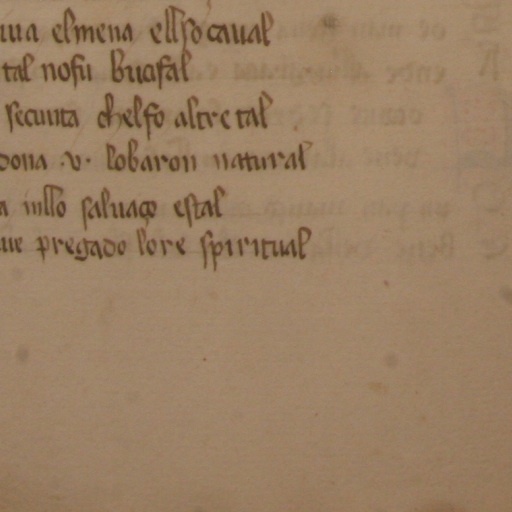 elmena ellso caual
tal nofu bucifal
secunta chelfo altretal
dona .v. lobaron natural
a nillo saluaço estal
ue pregado lo re spiritual